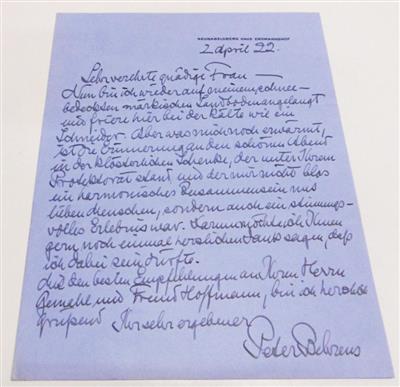 NEUBABELSBERG HAUS ERDMANNSHOF
2 April 22.
Sehr verehrte gnädige Frau —
Nun bin ich wieder auf meinem schnee-
bedeckten märkischen Landboden angelangt
und friere hier bei der Kälte wie ein
Schneider. Aber was mich noch erwärmt,
ist die Erinnerung an den schönen Abend
in der klösterlichen Schenke, der unter Ihrem
Protektorat stand und der mir nicht blos
ein harmonisches Beisammensein mit
lieben Menschen, sondern auch ein stimmungs-
volles Erlebnis war. Darum möchte ich Ihnen
gern noch einmal herzlichen Dank sagen, daß
ich dabei sein durfte.
Mit den besten Empfehlungen an Ihren Herrn
Gemahl und Freund Hoffmann, bin ich herzlich
grüßend Ihr sehr ergebener
Peter Behrens